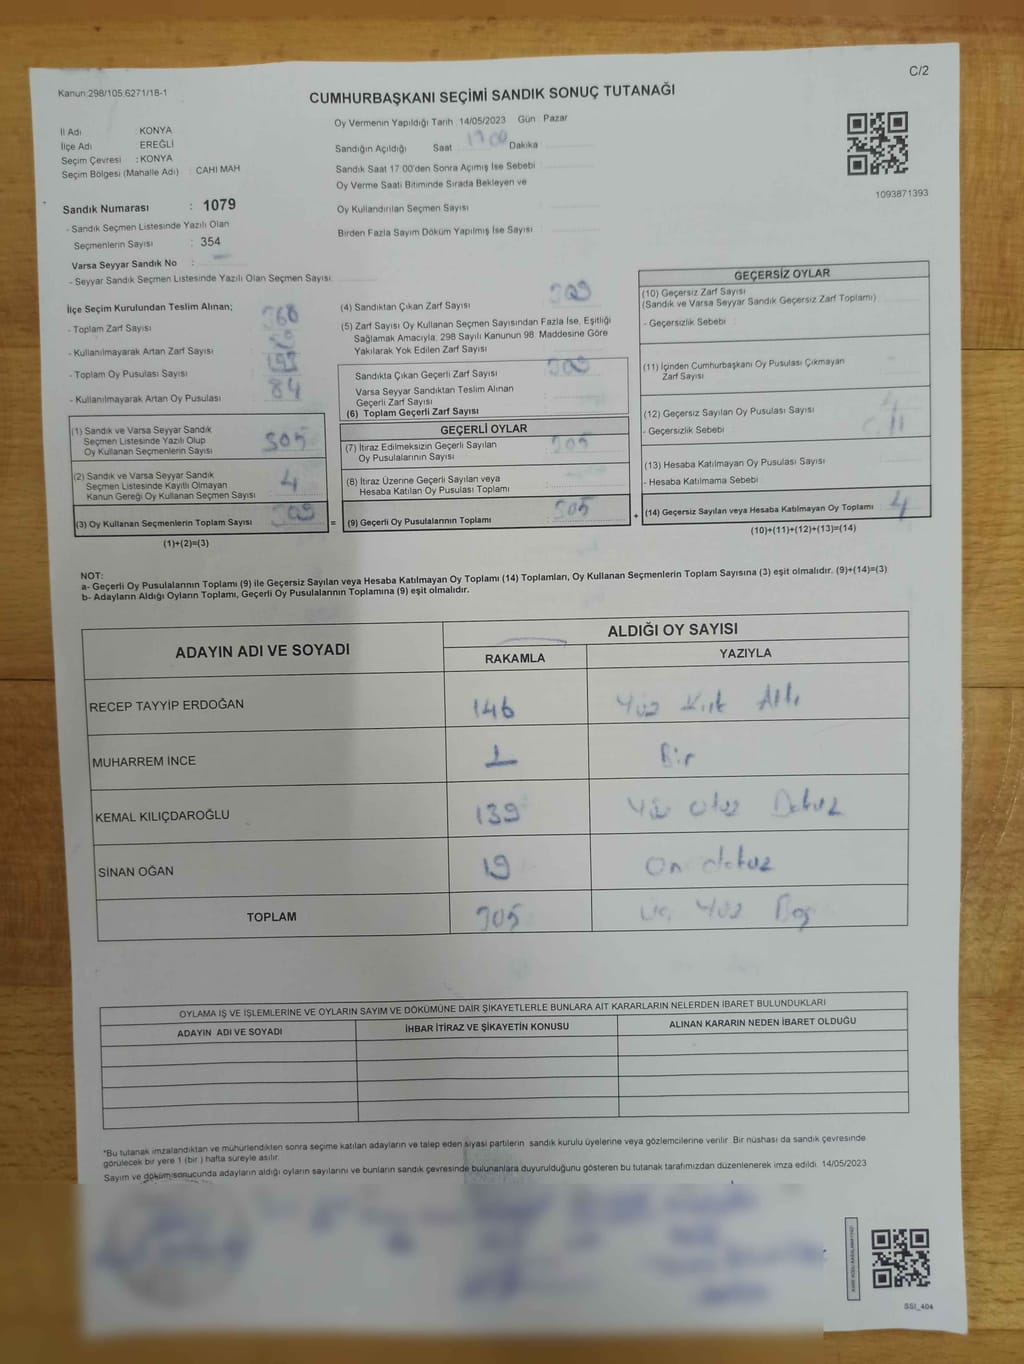 C/2
Kanun:298/105.6271/18-1
CUMHURBAŞKANI SEÇİMİ SANDIK SONUÇ TUTANAĞI
Oy Vermenin Yapıldığı Tarih :14/05/2023 Gün : Pazar
İl Adı : KONYA
İlçe Adı : EREĞLİ
Seçim Çevresi : KONYA
Seçim Bölgesi (Mahalle Adı) : CAHI MAH
Sandığın Açıldığı Saat 17 00 Dakika
Sandık Saat 17 00'den Sonra Açımış İse Sebebi
Oy Verme Saati Bitiminde Sırada Bekleyen ve
Oy Kullandırılan Seçmen Sayısı
Birden Fazla Sayım Döküm Yapılmış İse Sayısı
1093871393
Sandık Numarası : 1079
- Sandık Seçmen Listesinde Yazılı Olan
Seçmenlerin Sayısı : 354
Varsa Seyyar Sandık No :
- Seyyar Sandık Seçmen Listesinde Yazılı Olan Seçmen Sayısı:
İlçe Seçim Kurulundan Teslim Alınan;
- Toplam Zarf Sayısı 360
- Kullanılmayarak Artan Zarf Sayısı
- Toplam Oy Pusulası Sayısı
- Kullanılmayarak Artan Oy Pusulası 84
(1) Sandık ve Varsa Seyyar Sandık
Seçmen Listesinde Yazılı Olup
Oy Kullanan Seçmenlerin Sayısı 305
(2) Sandık ve Varsa Seyyar Sandık
Seçmen Listesinde Kayıtlı Olmayan
Kanun Gereği Oy Kullanan Seçmen Sayısı 4
(3) Oy Kullanan Seçmenlerin Toplam Sayısı 309 =
(1)+(2)=(3)
(4) Sandıktan Çıkan Zarf Sayısı 309
(5) Zarf Sayısı Oy Kullanan Seçmen Sayısından Fazla İse, Eşitliği
Sağlamak Amacıyla, 298 Sayılı Kanunun 98. Maddesine Göre
Yakılarak Yok Edilen Zarf Sayısı
Sandıkta Çıkan Geçerli Zarf Sayısı 309
Varsa Seyyar Sandıktan Teslim Alınan
Geçerli Zarf Sayısı
(6) Toplam Geçerli Zarf Sayısı
GEÇERLİ OYLAR
(7) İtiraz Edilmeksizin Geçerli Sayılan
Oy Pusulalarının Sayısı 305
(8) İtiraz Üzerine Geçerli Sayılan veya
Hesaba Katılan Oy Pusulası Toplamı
(9) Geçerli Oy Pusulalarının Toplamı 305 +
GEÇERSİZ OYLAR
(10) Geçersiz Zarf Sayısı
(Sandık ve Varsa Seyyar Sandık Geçersiz Zarf Toplamı)
- Geçersizlik Sebebi
(11) İçinden Cumhurbaşkanı Oy Pusulası Çıkmayan
Zarf Sayısı
(12) Geçersiz Sayılan Oy Pusulası Sayısı 4
- Geçersizlik Sebebi
(13) Hesaba Katılmayan Oy Pusulası Sayısı
- Hesaba Katılmama Sebebi
(14) Geçersiz Sayılan veya Hesaba Katılmayan Oy Toplamı 4
(10)+(11)+(12)+(13)=(14)
NOT:
a- Geçerli Oy Pusulalarının Toplamı (9) ile Geçersiz Sayılan veya Hesaba Katılmayan Oy Toplamı (14) Toplamları, Oy Kullanan Seçmenlerin Toplam Sayısına (3) eşit olmalıdır. (9)+(14)=(3)
b- Adayların Aldığı Oyların Toplamı, Geçerli Oy Pusulalarının Toplamına (9) eşit olmalıdır.
ADAYIN ADI VE SOYADI
ALDIĞI OY SAYISI
RAKAMLA YAZIYLA
RECEP TAYYİP ERDOĞAN 146 Yüz Kırk Altı
MUHARREM İNCE 1 Bir
KEMAL KILIÇDAROĞLU 139 Yüz Otuz Dokuz
SİNAN OĞAN 19 On dokuz
TOPLAM 305 Üç Yüz Beş
OYLAMA İŞ VE İŞLEMLERİNE VE OYLARIN SAYIM VE DÖKÜMÜNE DAİR ŞİKAYETLERLE BUNLARA AİT KARARLARIN NELERDEN İBARET BULUNDUKLARI
ADAYIN ADI VE SOYADI İHBAR İTİRAZ VE ŞİKAYETİN KONUSU ALINAN KARARIN NEDEN İBARET OLDUĞU
*Bu tutanak imzalandıktan ve mühürlendikten sonra seçime katılan adayların ve talep eden siyasi partilerin sandık kurulu üyelerine veya gözlemcilerine verilir. Bir nüshası da sandık çevresinde
görülecek bir yere 1 (bir ) hafta süreyle asılır.
Sayım ve döküm sonucunda adayların aldığı oyların sayılarını ve bunların sandık çevresinde bulunanlara duyurulduğunu gösteren bu tutanak tarafımızdan düzenlenerek imza edildi. 14/05/2023
SSI_404